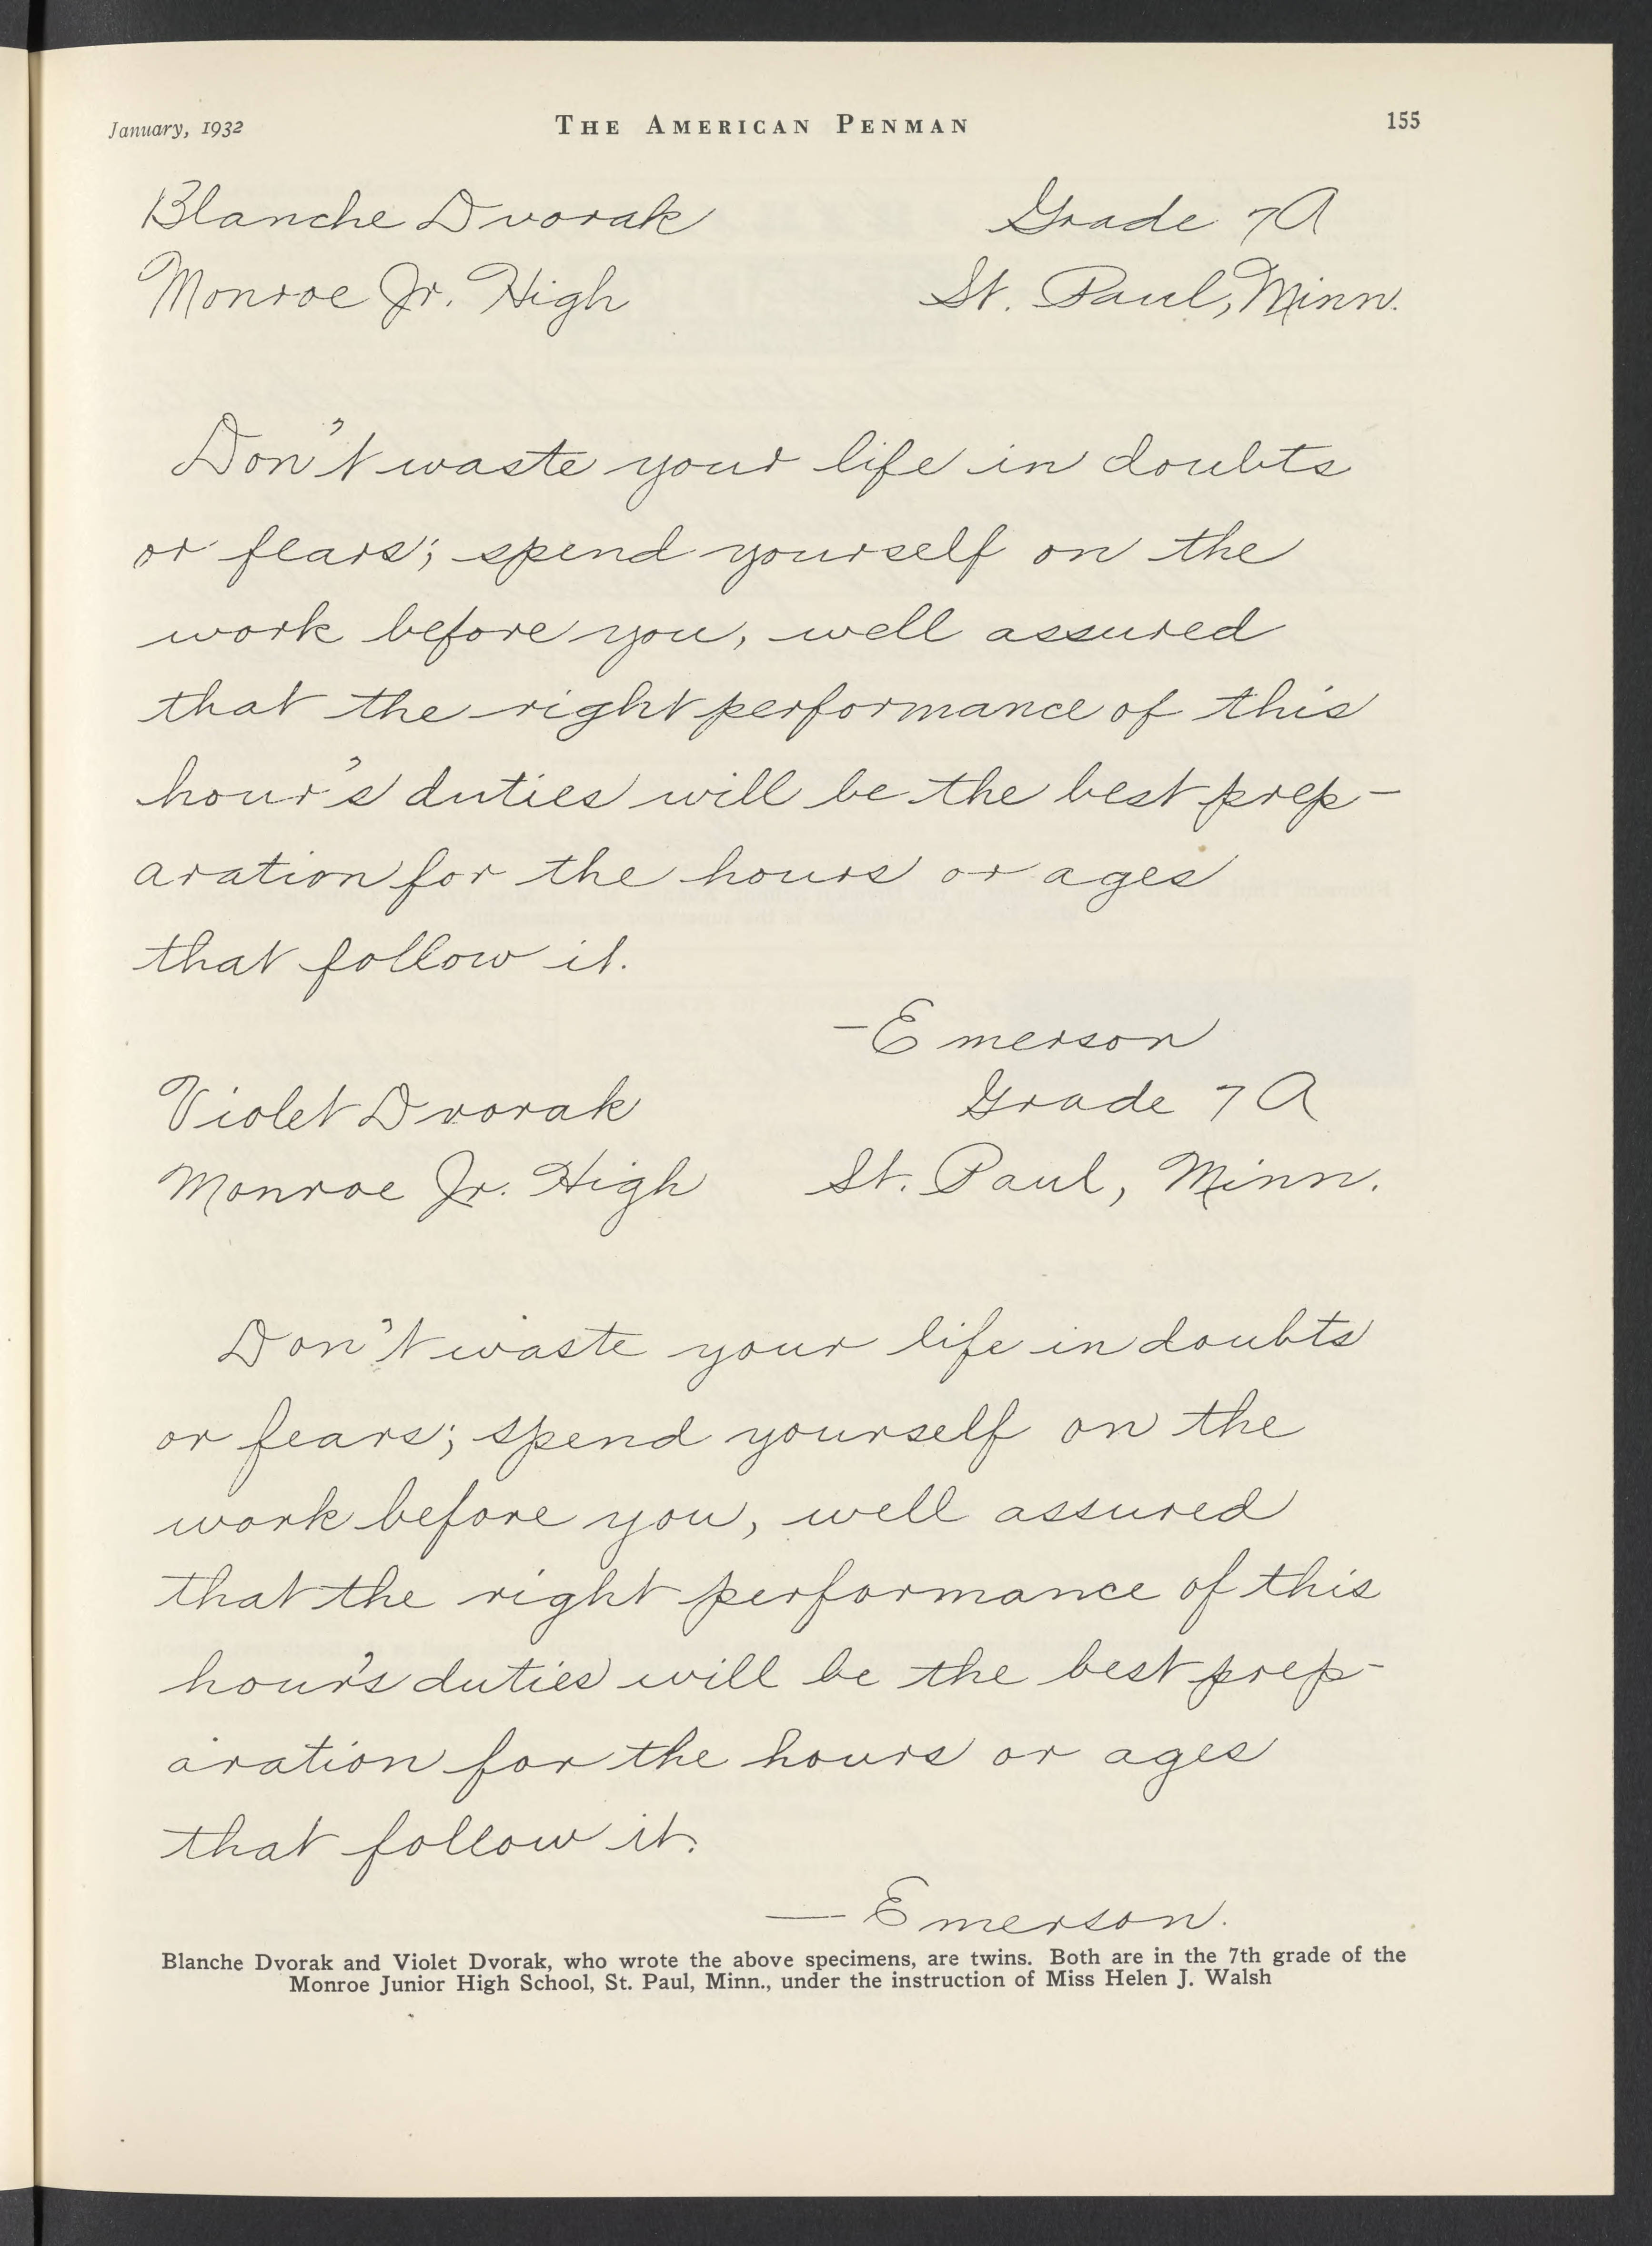 January, 1932 THE AMERICAN PENMAN 155
Blanche Dvorak Grade 7A
Monroe Jr. High St. Paul, Minn.
Don't waste your life in doubts
or fears; spend yourself on the
work before you, well assured
that the right performance of this
hour's duties will be the best prep-
aration for the hours or ages
that follow it.
—Emerson
Violet Dvorak Grade 7A
Monroe Jr. High St. Paul, Minn.
Don't waste your life in doubts
or fears; spend yourself on the
work before you, well assured
that the right performance of this
hour's duties will be the best prep-
aration for the hours or ages
that follow it.
— Emerson.
Blanche Dvorak and Violet Dvorak, who wrote the above specimens, are twins. Both are in the 7th grade of the
Monroe Junior High School, St. Paul, Minn., under the instruction of Miss Helen J. Walsh